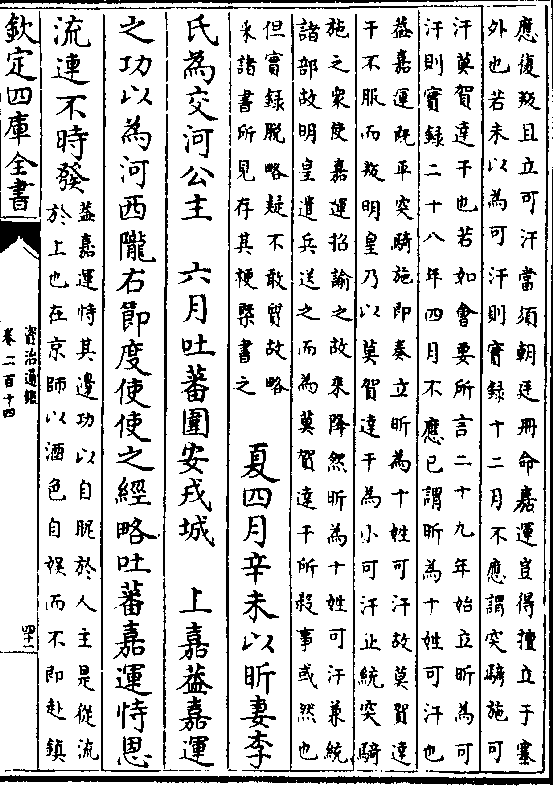 應復叛且立可汗當須朝廷冊命嘉運豈得擅立于塞
外也若未以為可汗則實録十二月不應謂突騎施可
汗莫賀達干也若如會要所言二十九年始立昕為可
汗則實録二十八年四月不應已謂昕為十姓可汗也
葢嘉運既平突騎施即奏立昕為十姓可汗故莫賀達
干不服而叛明皇乃以莫賀達干為小可汗止統突騎
施之衆使嘉運招諭之故來降然昕為十姓可汗兼統
諸部故明皇遣兵送之而為莫賀達干所殺事或然也
但實録脱略疑不敢質故略
采諸書所見存其梗槩書之
夏四月辛未以昕妻李
氏為交河公主 六月吐蕃圍安戎城 上嘉葢嘉運
之功以為河西隴右節度使使之經略吐蕃嘉運恃恩
流連不時發
葢嘉運恃其邊功以自昵於人主是從流
於上也在京師以酒色自娱而不即赴鎮
欽定四庫全書
資治通鑑
卷二百十四
四十二